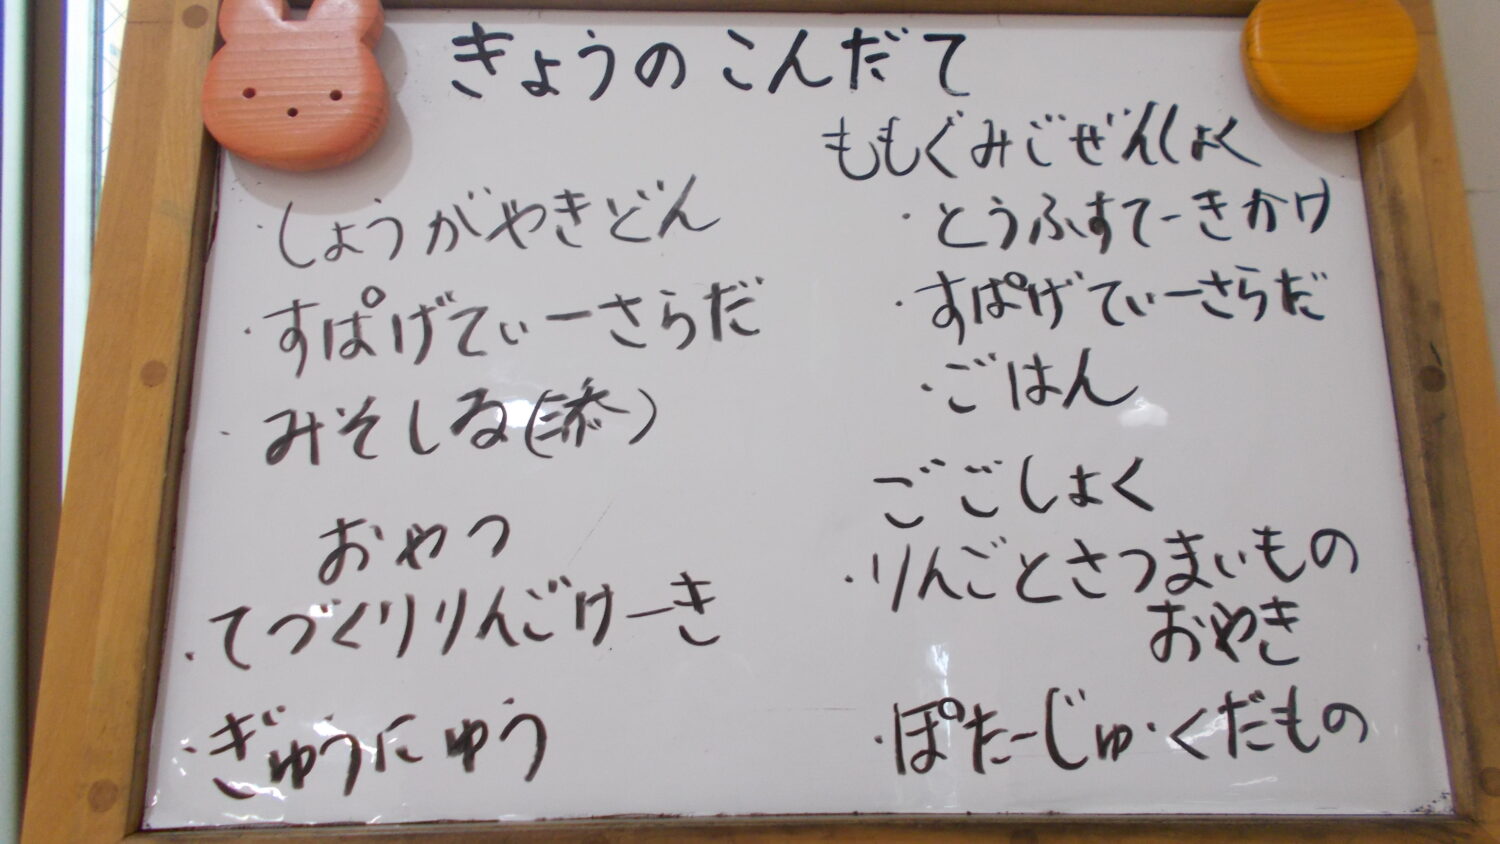 きょうのこんだて
・しょうがやきどん
・すぱげてぃーさらだ
・みそしる(添)
おやつ
・てづくりりんごけーき
・ぎゅうにゅう
ももぐみごぜんしょく
・とうふすてーきかけ
・すぱげてぃーさらだ
・ごはん
ごごしょく
・りんごとさつまいもの
おやき
・ぽたーじゅ・くだもの